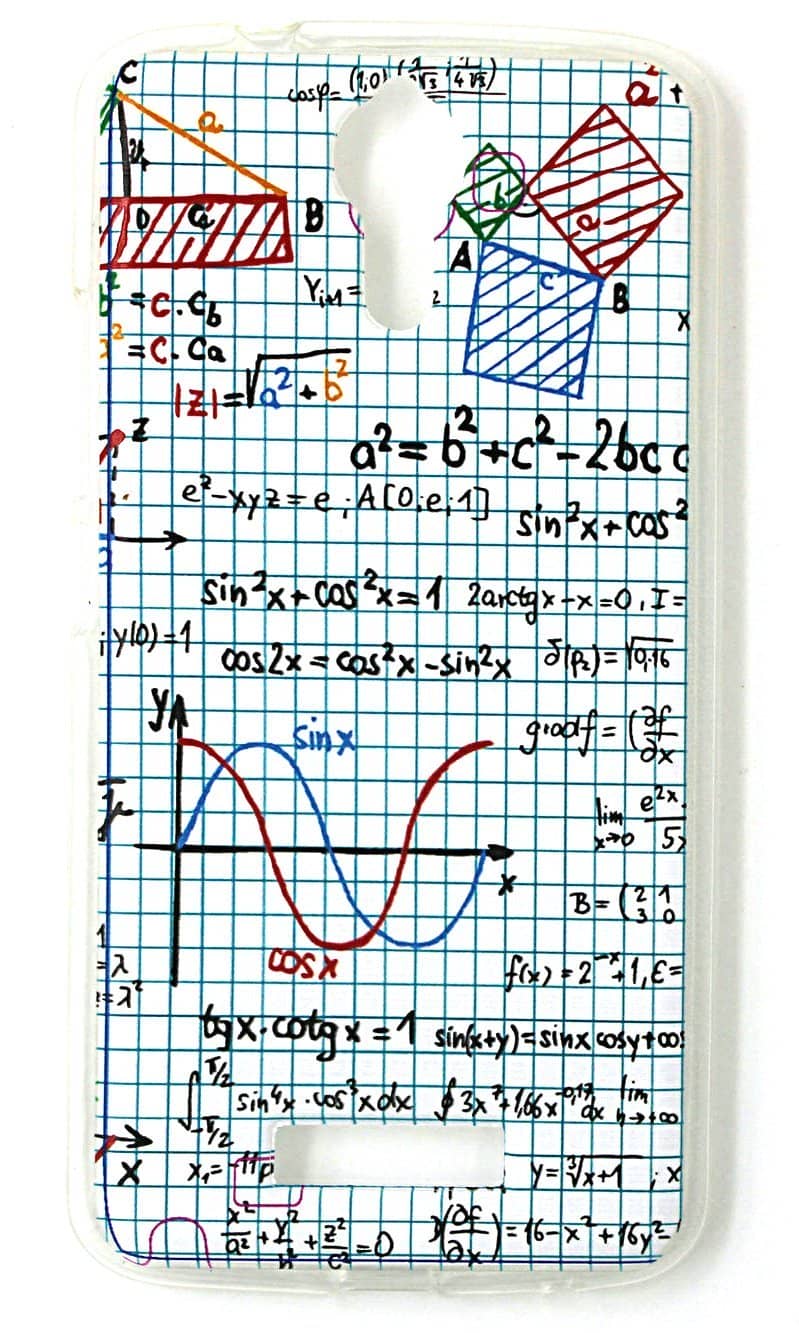 C
cosφ=
a
a²
+
b
a
D
B
A
c
B
x
Y_{i+1}=
2
b²=c.c_b
=c.c_a
|z|=√a²+b²
z
a²=b²+c²-2bc c
e²-xyz=e ; A[0;e;1]
sin²x+cos²
sin²x+cos²x=1
2arctgx-x=0, I=
; y(0)=1
cos2x=cos²x-sin²x
δ(p₂)=√0,16
y
sin x
gradf=(∂f/∂x
lim x→0 e²ˣ/5x
x
B=(2 1
3 0
1
=λ
=λ²
cos x
f(x)=2⁻ˣ+1, ε=
tgx.cotgx=1
sin(x+y)=sinx cosy+co
∫ -π/2 π/2 sin⁴x·cos³xdx
∮3x⁷+1,66x^{-0,17}dx
lim n→+∞
x
x₁=-11p
y=∛x+1 ; x
x²/a²+y²/b²+z²/c²=0
(∂f/∂x)=16-x²+16y²-